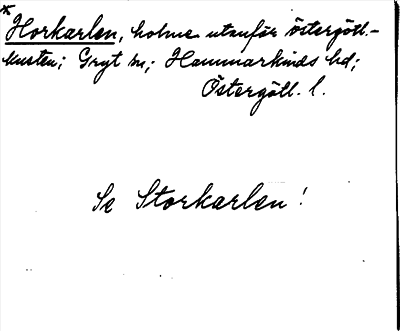 * Horkarlen, holme utanför östergötl.-
kusten; Gryt sn; Hammarkinds hd;
Östergötl. l.
Se Storkarlen!